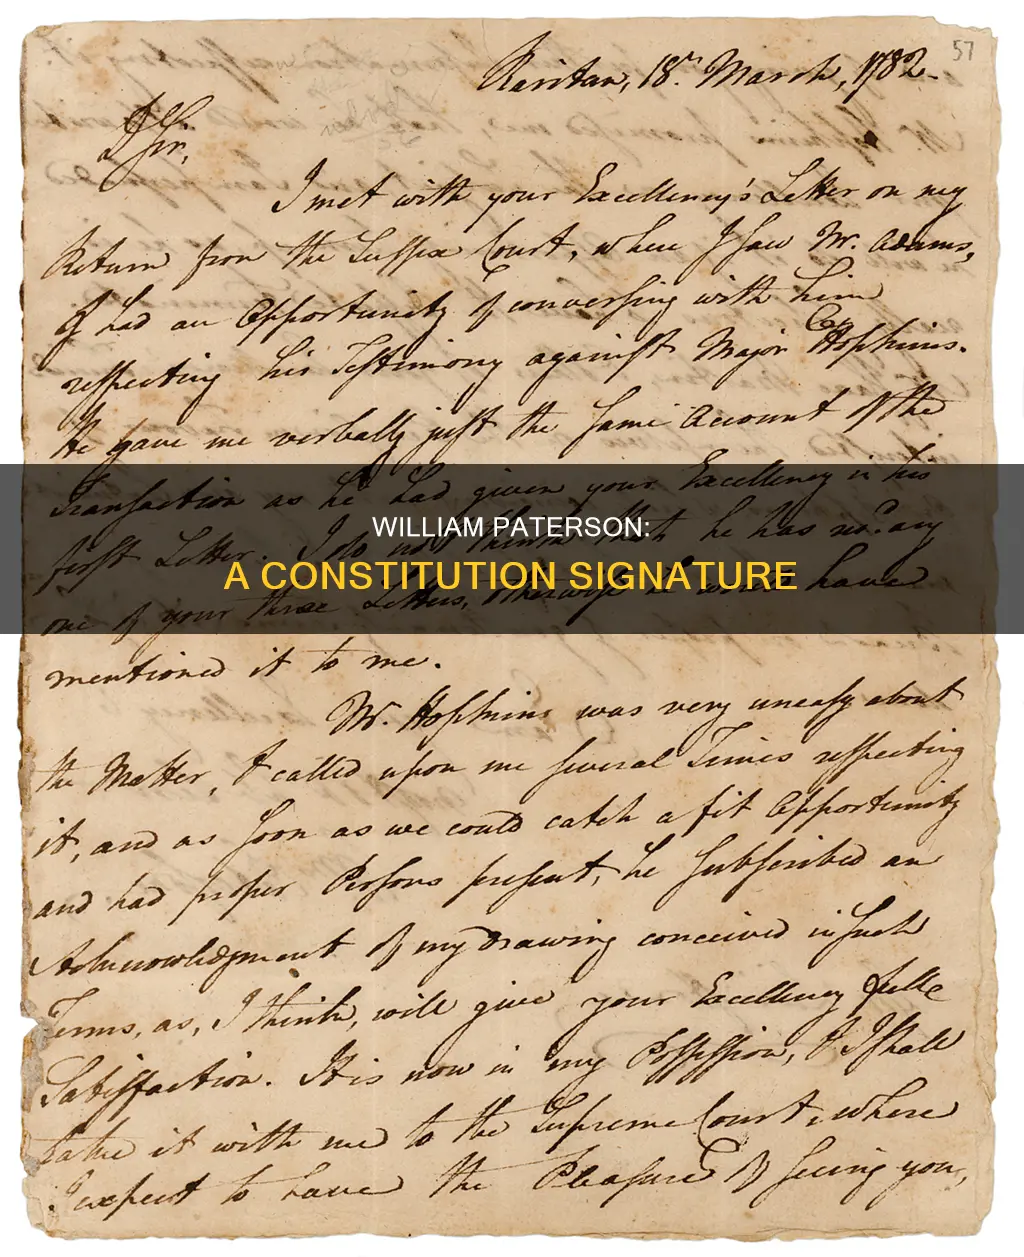 57
Raritan, 18th March, 1782.
D Sir,
I met with your Excellency's Letter on my
Return from the Sussex Court, where I saw Mr. Adams,
& had an Opportunity of conversing with him
respecting his Testimony against Major Hopkins.
He gave me verbally just the same Account of the
Transaction as he had given your Excellency in his
first Letter. I do not think that he has recd. any
one of your three Letters, otherwise he would have
mentioned it to me.
WILLIAM PATERSON:
A CONSTITUTION SIGNATURE
Mr. Hopkins was very uneasy about
the Matter, & called upon me several Times respecting
it, and as soon as we could catch a fit Opportunity
and had proper Persons present, he subscribed an
Acknowledgment of my drawing conceived in such
Terms, as, I think, will give your Excellency full
Satisfaction. It is now in my Possession, & I shall
take it with me to the Supreme Court, where
I expect to have the Pleasure of seeing you,